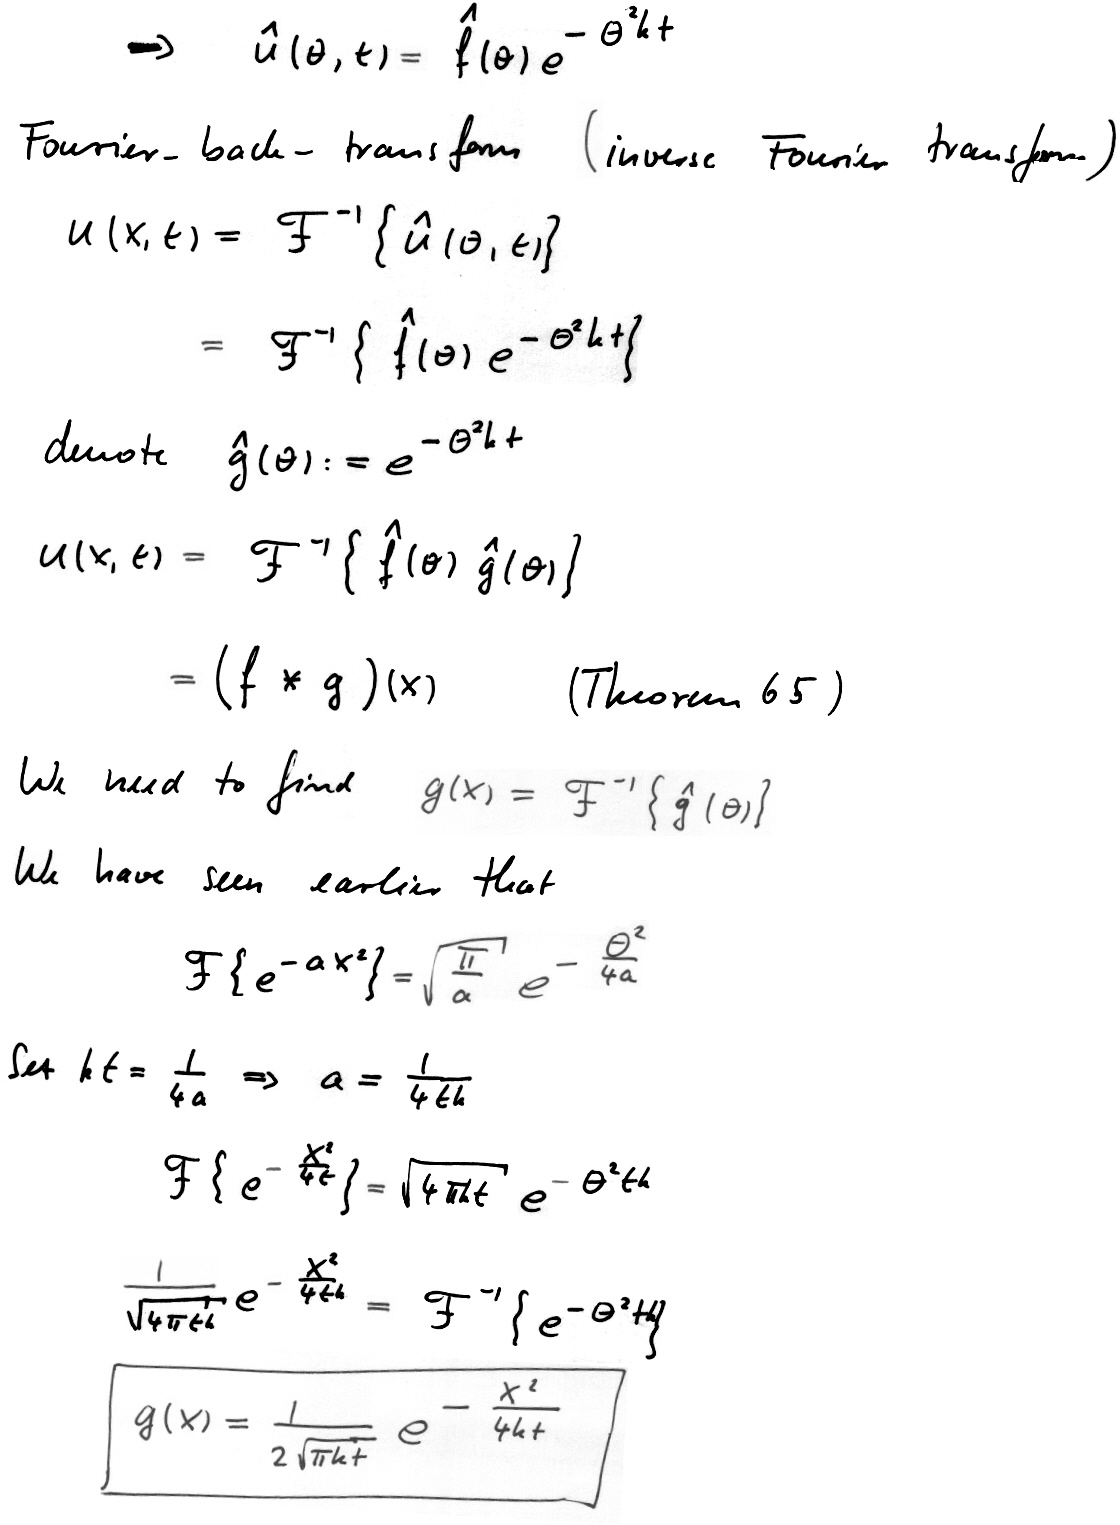 ⇒ û(θ, t) = f̂(θ) e^{-θ²kt}
Fourier-back-transform (inverse Fourier transform)
u(x, t) = ℱ⁻¹{û(θ, t)}
= ℱ⁻¹{f̂(θ) e^{-θ²kt}}
denote ĝ(θ) := e^{-θ²kt}
u(x, t) = ℱ⁻¹{f̂(θ) ĝ(θ)}
= (f * g)(x) (Theorem 65)
We need to find g(x) = ℱ⁻¹{ĝ(θ)}
We have seen earlier that
ℱ{e^{-ax²}} = √(π/a) e^{-θ²/4a}
Set kt = 1/4a ⇒ a = 1/4tk
ℱ{e^{-x²/4t}} = √(4πkt) e^{-θ²tk}
1/√(4πtk) e^{-x²/4tk} = ℱ⁻¹{e^{-θ²tk}}
g(x) = 1/(2√(πkt)) e^{-x²/4kt}